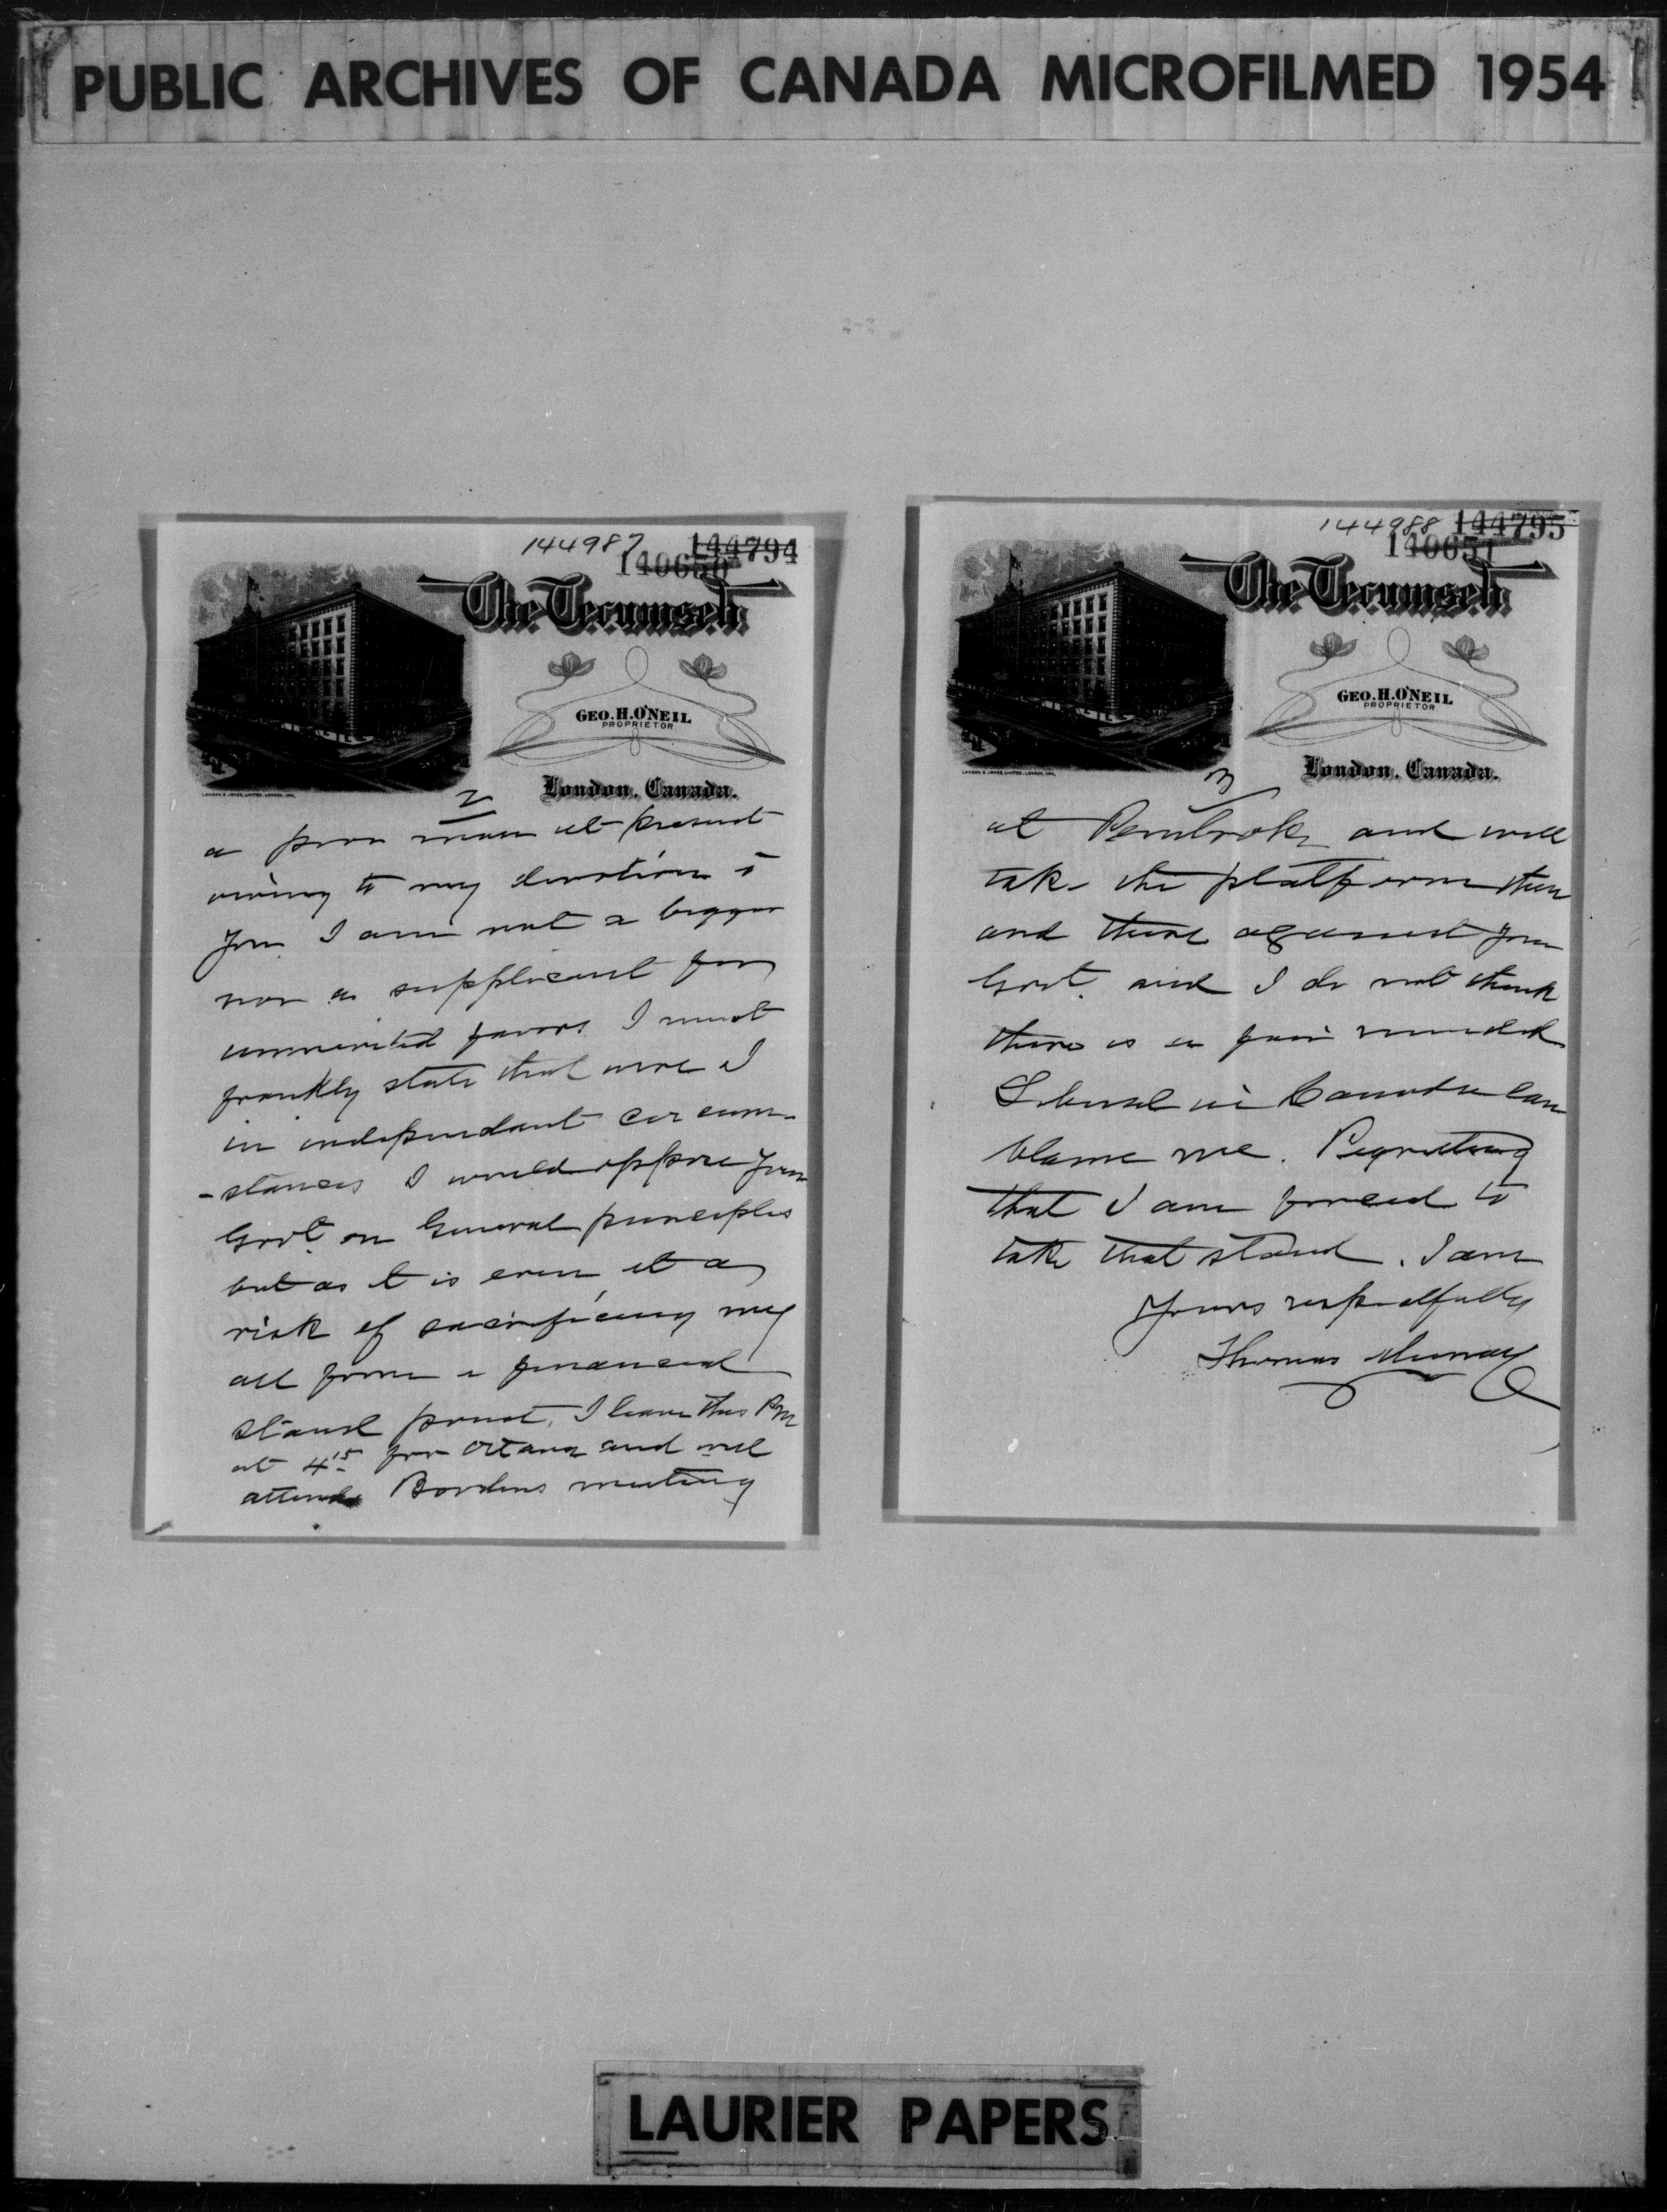 PUBLIC ARCHIVES OF CANADA MICROFILMED 1954
144987 144794
140650
The Tecumseh
GEO. H. O'NEIL
PROPRIETOR
London, Canada.
LAWSON & JONES, LIMITED, LONDON, CAN.
2
a poor man at present
owing to my devotion to
you I am not a beggar
nor a supplicant for
unmerited favors I must
frankly state that were I
in independant circum-
-stances I would oppose your
Govt. on General principles
but as it is even at a
risk of sacrificing my
all from a financial
stand point, I leave this PM
at 4 15 for Ottawa and will
attend Bordens meeting
144988 144795
140651
The Tecumseh
GEO. H. O'NEIL
PROPRIETOR
London, Canada.
LAWSON & JONES, LIMITED, LONDON, CAN.
3
at Pembroke and will
take the platform then
and there against your
Govt. and I do not think
there is a fair minded
Liberal in Canada can
blame me. Regretting
that I am forced to
take that stand. I am
Yours respectfully
Thomas Murray
LAURIER PAPERS